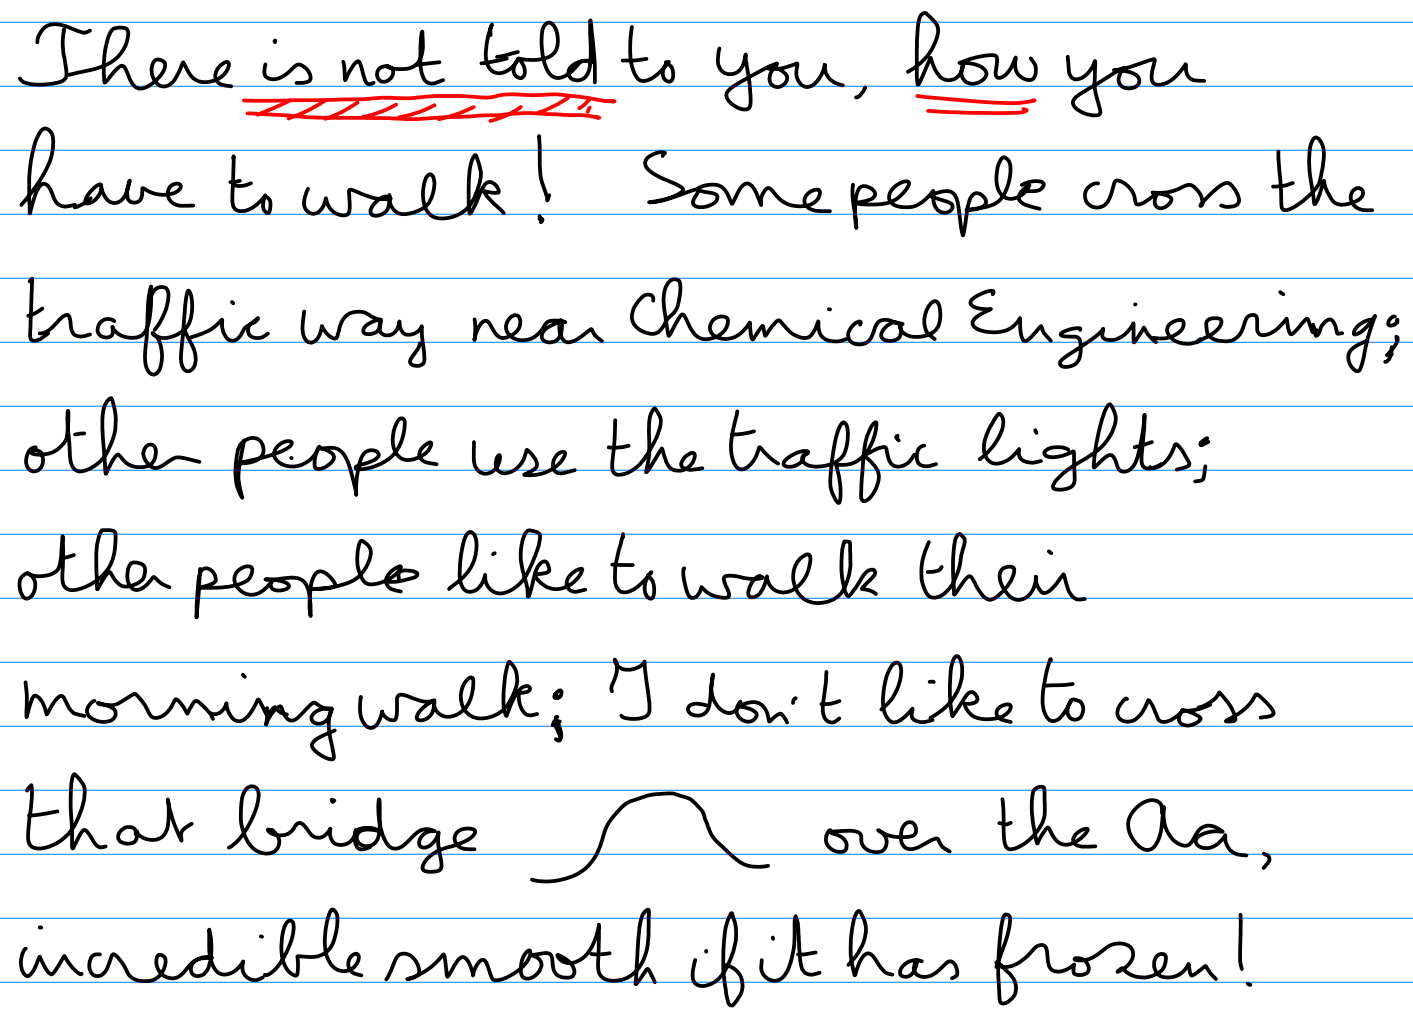 There is not told to you, how you
have to walk! Some people cross the
traffic way near Chemical Engineering;
other people use the traffic lights;
other people like to walk their
morning walk; I don't like to cross
that bridge over the Aa,
incredible smooth if it has frozen!